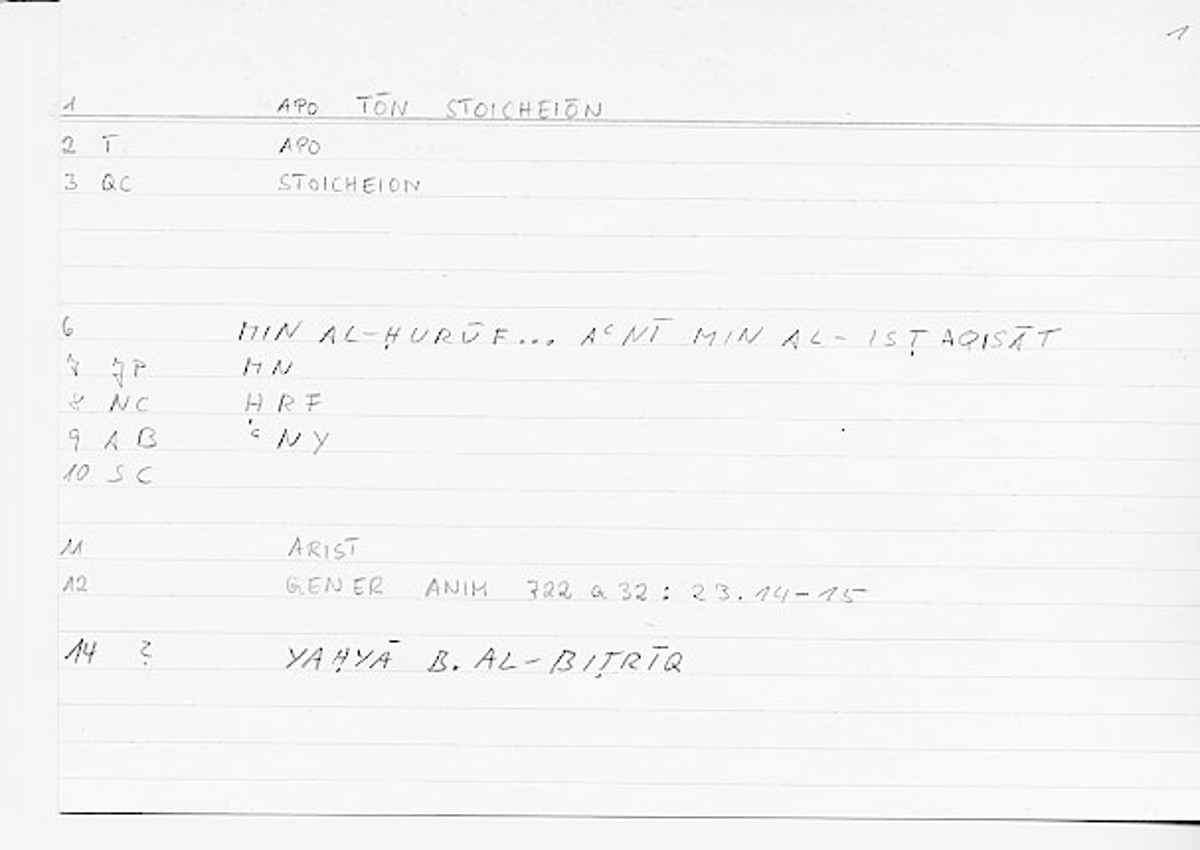 1
1 APO TŌN STOICHEIŌN
2 T APO
3 QC STOICHEION
6 MIN AL-ḤURŪF... AᶜNĪ MIN AL-ISṬAQISĀT
7 JP MN
8 NC ḤRF
9 AB ᶜNY
10 SC
11 ARIST
12 GENER ANIM 722 a 32 : 23.14-15
14 ? YAḤYĀ B. AL-BIṬRĪQ